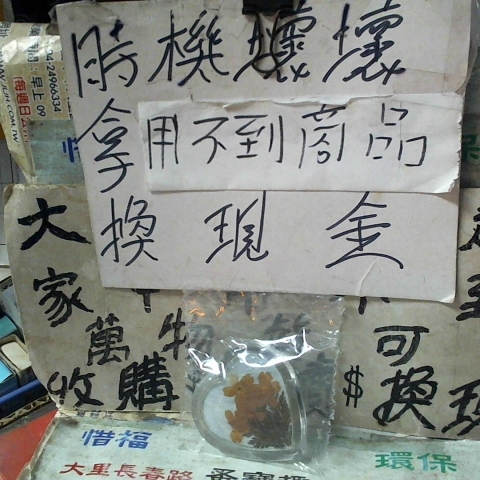 時機壞壞
拿用不到商品
換現金
大
家
萬物
收購
可
$換現
惜福
環保
大里長春路